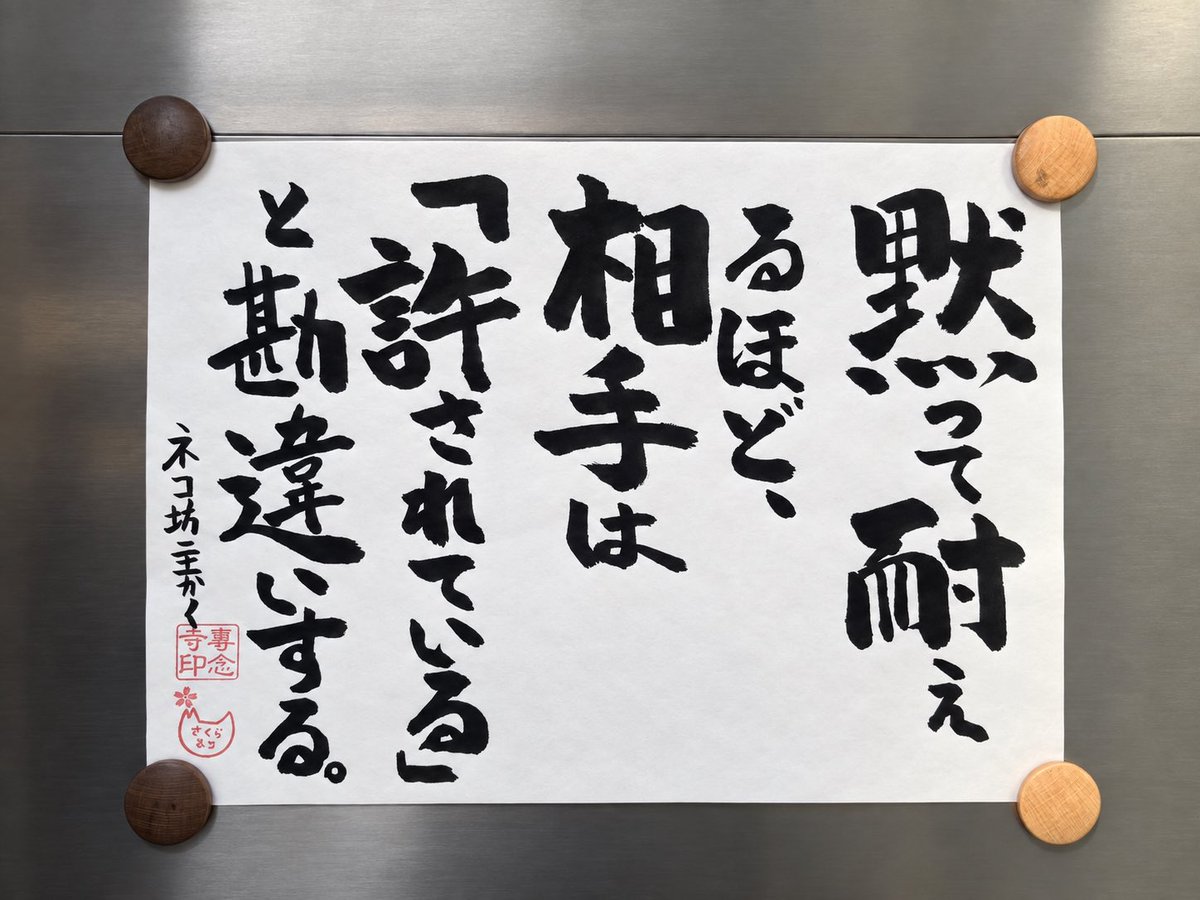 黙って耐え
るほど、
相手は
「許されている」
と勘違いする。
ネコ坊主かく
専念
寺印
さくら